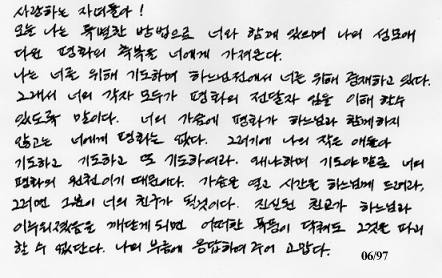 사랑하는 자녀들아 !
오늘 나는 특별한 방법으로 너와 함께 있으며 나의 성모에
다윈 평화의 축복을 너에게 가져온다.
나는 너를 위해 기도하며 하느님전에서 너를 위해 중재하고 있다.
그래서 너의 각자 모두가 평화의 전달자 임을 이해 할수
있도록 말이다. 너의 가슴에 평화가 하느님과 함께하지
않고는 너에게 평화는 없다. 그러기에 나의 작은 애들아
기도하고 기도하고 또 기도하여라. 왜냐하며 기도야 말로 너의
평화의 원천이기 때문이다. 가슴을 열고 시간을 하느님께 드려라,
그러면 그분이 너의 친구가 될것이다. 진실된 친교가 하느님과
이루워졌음을 깨닫게 되면 어떠한 폭풍이 닥쳐도 그것은 파괴
할 수 없단다. 나의 부름에 응답하여 주어 고맙다.
06/97